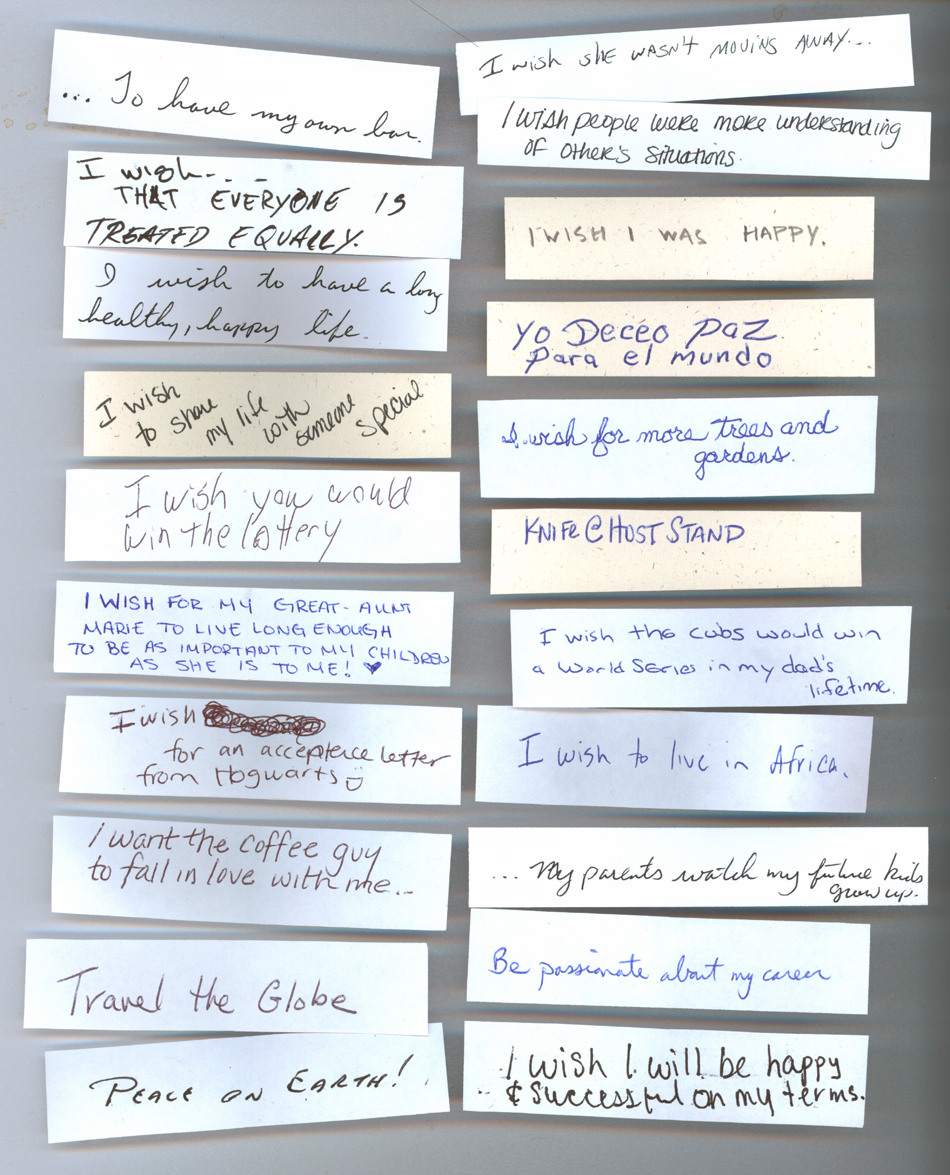 ... To have my own bar.
I wish - - -
THAT EVERYONE IS
TREATED EQUALLY.
I wish to have a long
healthy, happy life.
I wish
to share
my life
with
someone
special
I wish you would
win the lottery
I WISH FOR MY GREAT-AUNT
MARIE TO LIVE LONG ENOUGH
TO BE AS IMPORTANT TO MY CHILDREN
AS SHE IS TO ME! ♥
I wish
for an acceptence letter
from Hogwarts
I want the coffee guy
to fall in love with me...
Travel the Globe
PEACE ON EARTH!
I wish SHE WASN'T MOVING AWAY...
I wish people were more understanding
OF Other's Situations.
I WISH I WAS HAPPY.
Yo Deceo Paz
Para el mundo
I wish for more trees and
gardens.
KNIFE @ HOST STAND
I wish the cubs would win
a World Series in my dad's
lifetime.
I wish to live in Africa.
... My parents watch my future kids
grow up.
Be passionate about my career
I wish I will be happy
& Successful on my terms.